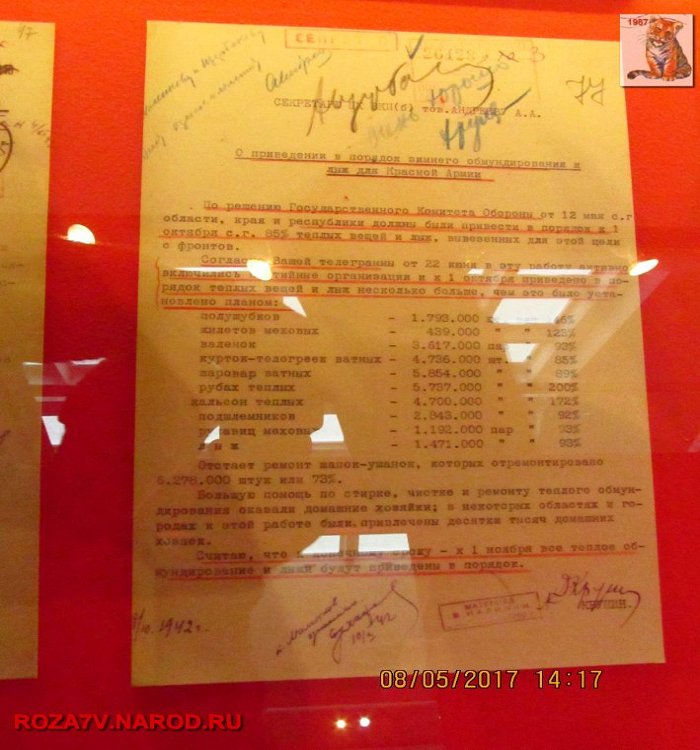 1987
77
СЕКРЕТАРЮ ЦК ВКП(б) тов. АНДРЕЕВУ А.А.
О приведении в порядок зимнего обмундирования и
лыж для Красной Армии
По решению Государственного Комитета Обороны от 12 мая с.г.
области, края и республики должны были привести в порядок к 1
октября с.г. 85% теплых вещей и лыж, вывезенных для этой цели
с фронтов.
Согласно Вашей телеграммы от 22 июня в эту работу активно
включились партийные организации и к 1 октября приведено в по-
рядок теплых вещей и лыж несколько больше, чем это было уста-
новлено планом:
полушубков - 1.793.000
жилетов меховых - 439.000 " " 123%
валенок - 3.617.000 пар " 93%
курток-телогреек ватных - 4.736.000 шт. " 85%
шаровар ватных - 5.854.000 " " 89%
рубах теплых - 5.737.000 " " 200%
кальсон теплых - 4.700.000 " " 172%
подшлемников - 2.843.000 " " 92%
рукавиц меховых - 1.192.000 пар " 93%
лыж - 1.471.000 " " 93%
Отстает ремонт шапок-ушанок, которых отремонтировано
6.278.000 штук или 73%.
Большую помощь по стирке, чистке и ремонту теплого обмун-
дирования оказали домашние хозяйки; в некоторых областях и го-
родах к этой работе были привлечены десятки тысяч домашних
хозяек.
Считаю, что к конечному сроку - к 1 ноября все теплое об-
мундирование и лыжи будут приведены в порядок.
1942 г.
08/05/2017 14:17
ROZA7V.NAROD.RU